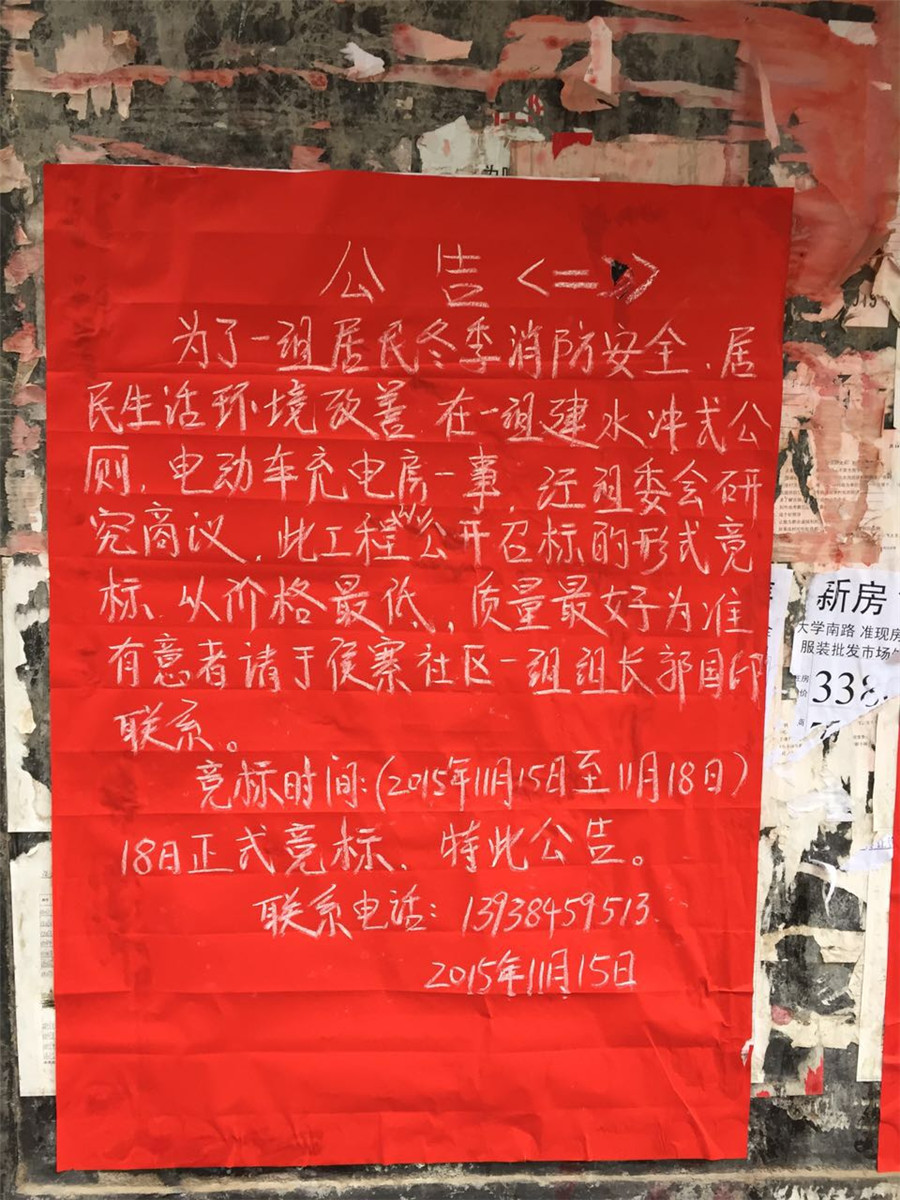 公 告 <二>
为了一组居民冬季消防安全、居
民生活环境改善 在一组建水冲式公
厕，电动车充电房一事，经祖委会研
究商议，此工程以公开召标的形式竟
标、从价格最低，质量最好为准
有意者请于侯寨社区一组组长郭国印
联系。
竞标时间:(2015年11月15日至11月18日)
18日正式竞标、特此公告。
联系电话：13938459513
2015年11月15日
新房
大学南路 准现房
服装批发市场
338